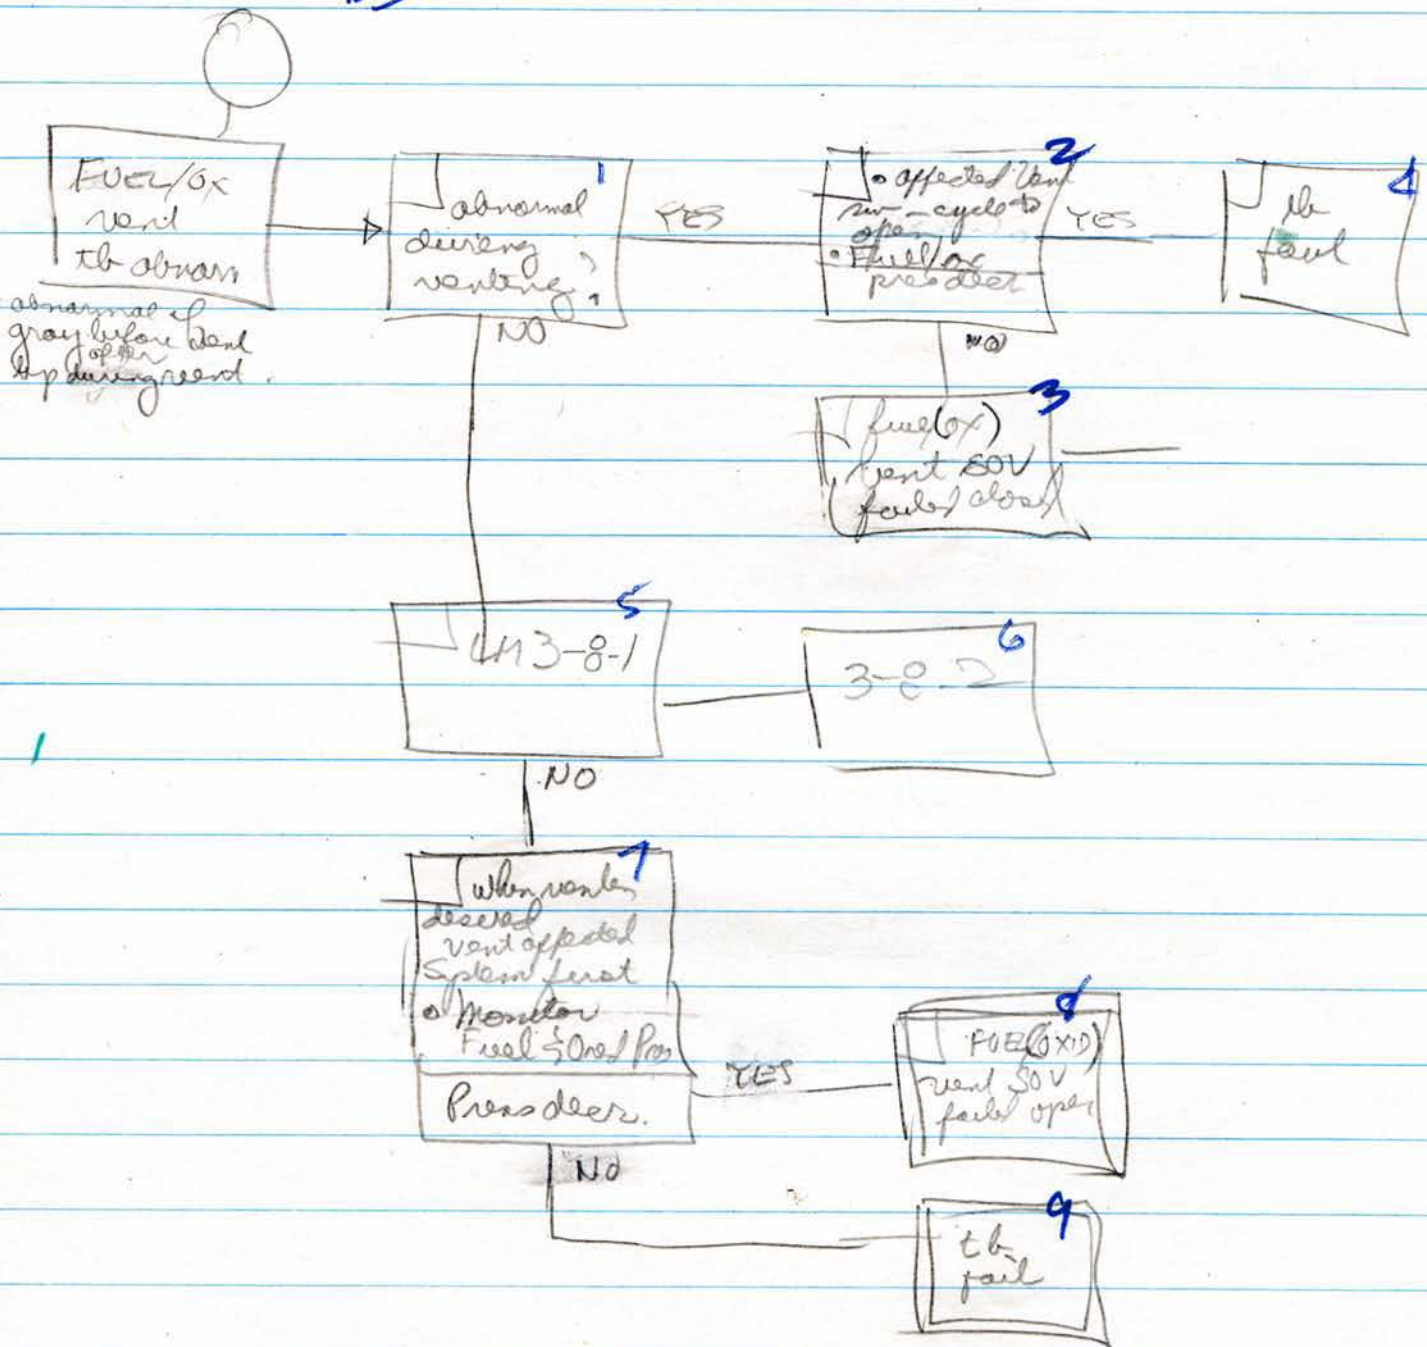 FUEL/OX
vent
tb abnorm
abnormal if
gray before vent
open
bp during vent.
1
abnormal
during
venting?
YES
NO
2
• affected Vent
sw - cycle to
open
• Fuel/ox
press decr
YES
NO
4
tb
fail
3
fuel(ox)
vent SOV
failed closed
5
LM3-8-1
6
3-8-2
NO
1
7
When vent
desired
vent affected
System first
• Monitor
Fuel & Oxid Pres
Press decr.
YES
NO
8
FUEL(OXID)
vent SOV
failed open
9
tb
fail